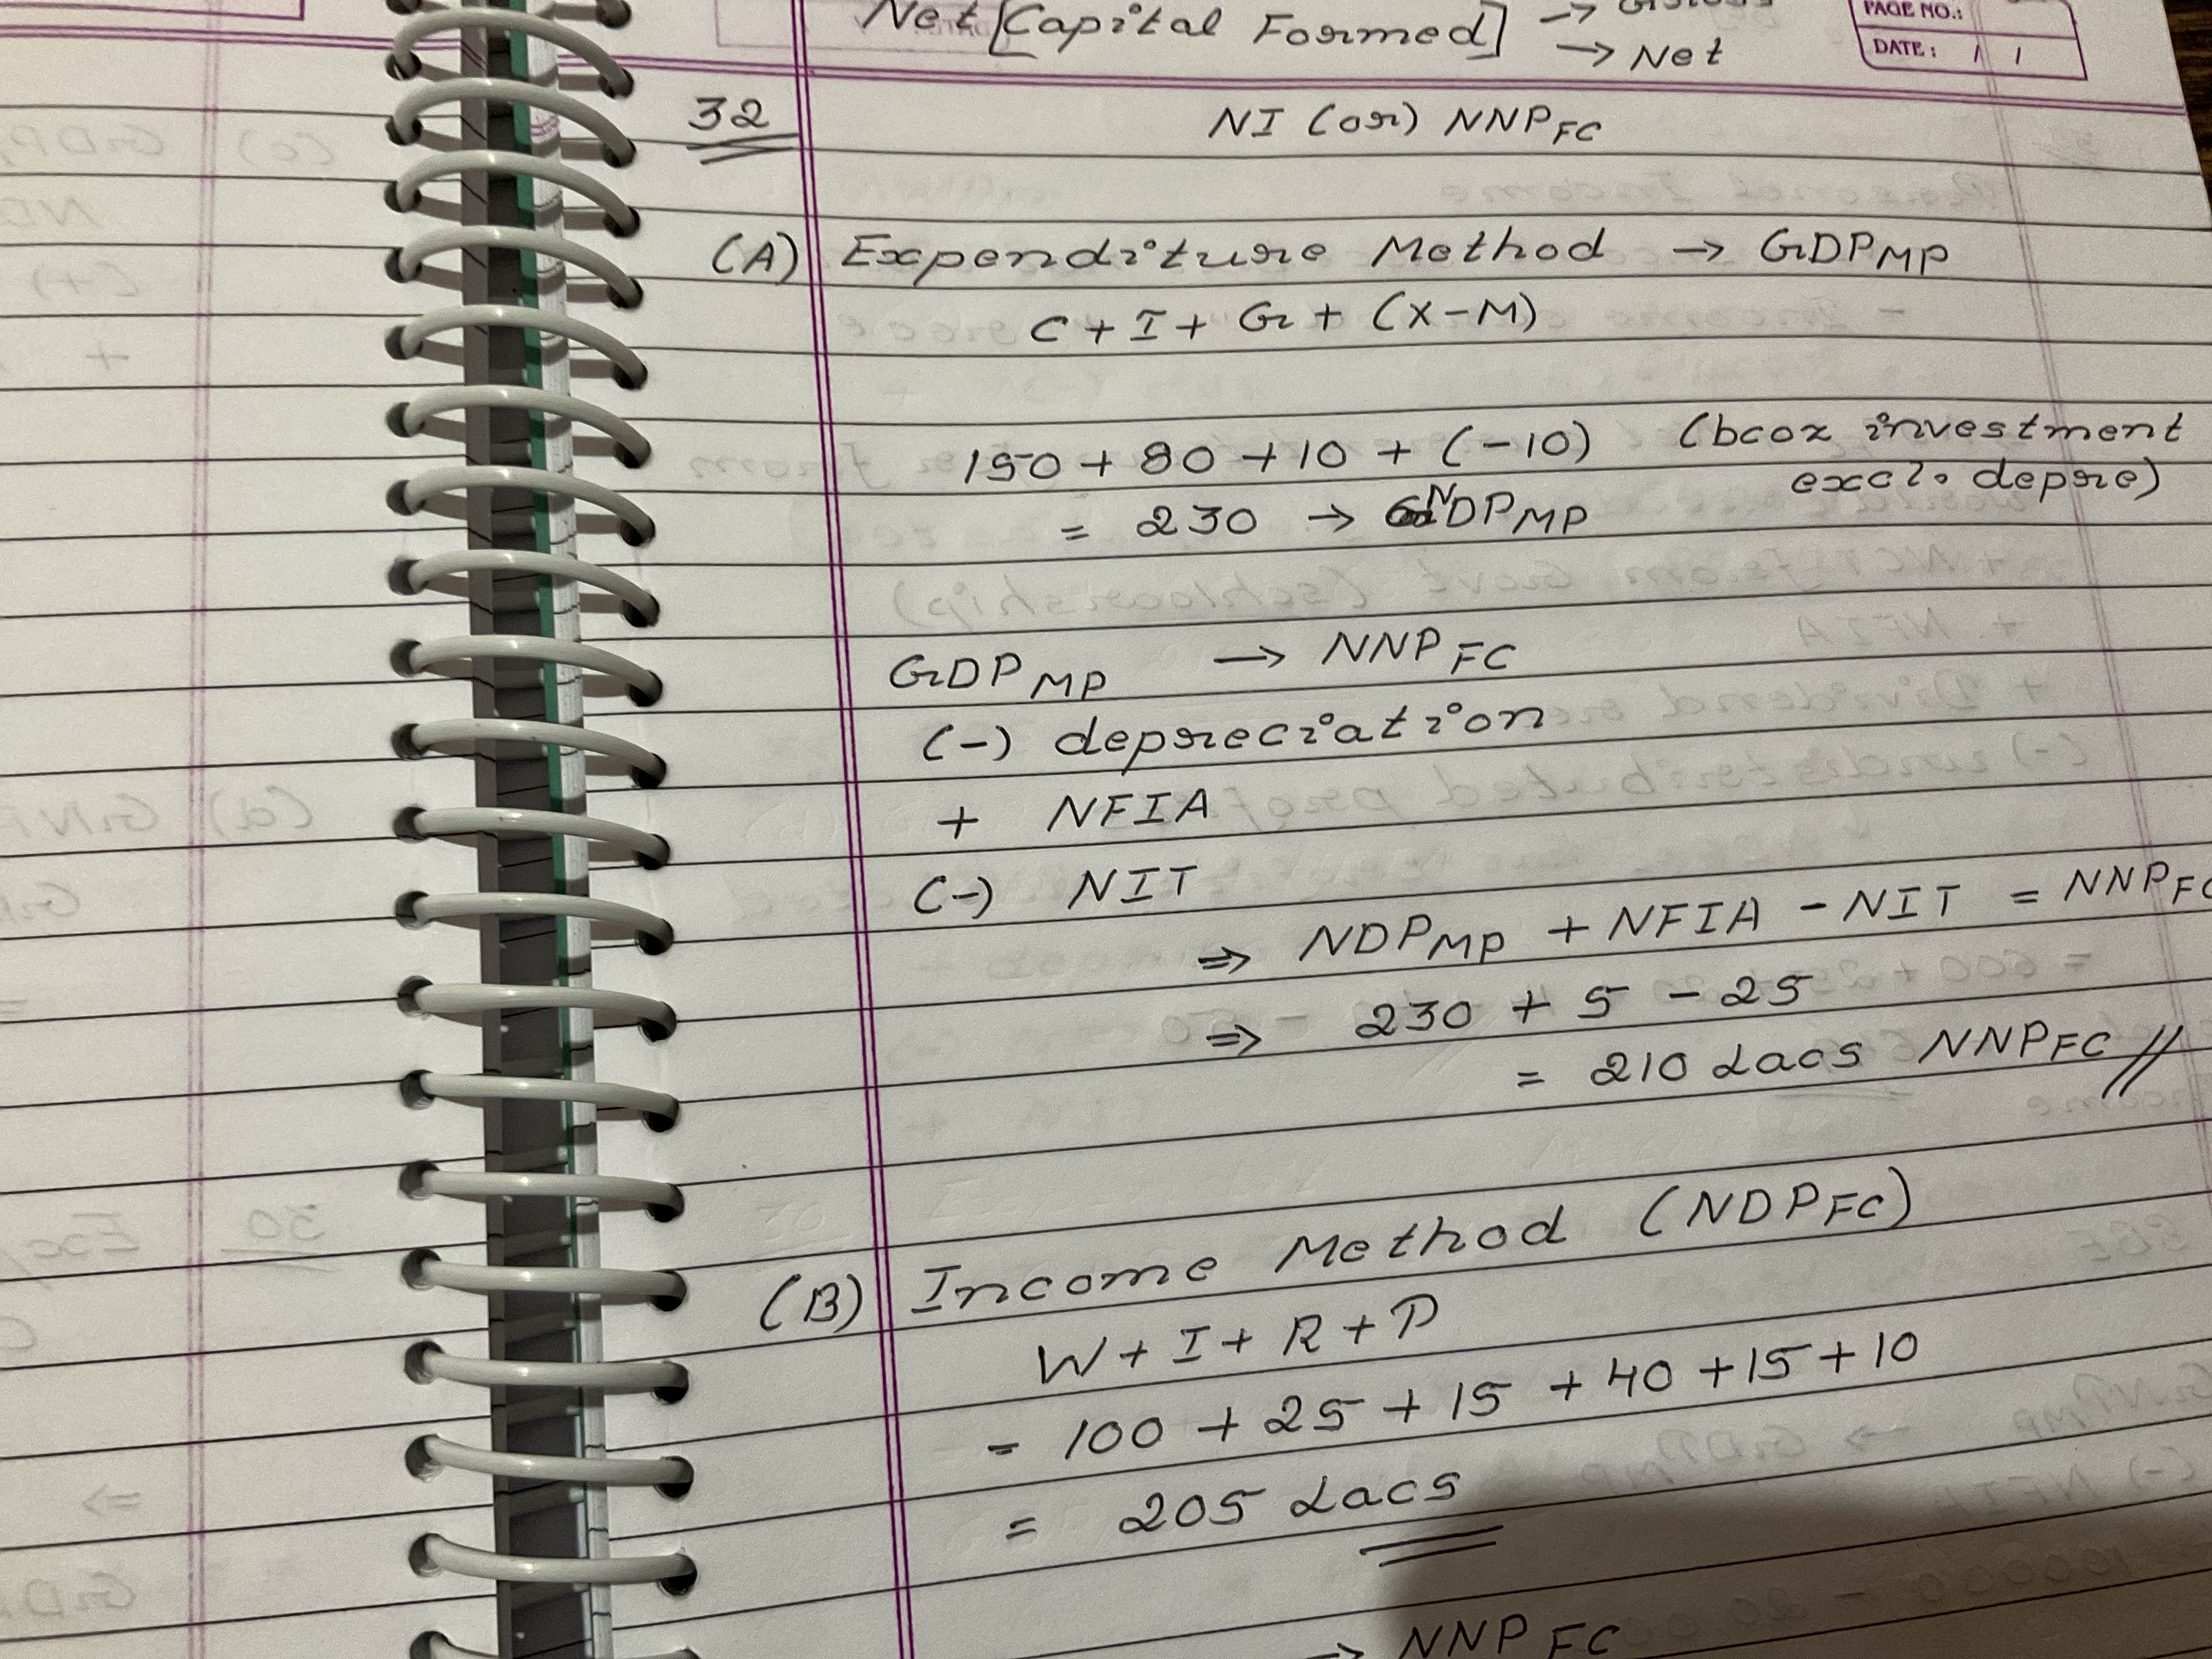 Net [Capital Formed] →
→ Net
PAGE NO.:
DATE: / /
32
NI (or) NNP FC
(A) Expenditure Method → GDP MP
C + I + G + (X-M)
150 + 80 + 10 + (-10) (bcoz investment
excl. depre)
= 230 → NDP MP
GDP MP → NNP FC
(-) depreciation
+ NFIA
(-) NIT
⇒ NDP MP + NFIA - NIT = NNP FC
⇒ 230 + 5 - 25
= 210 Lacs NNP FC //
(B) Income Method (NDP FC)
W + I + R + P
= 100 + 25 + 15 + 40 + 15 + 10
= 205 Lacs
→ NNP FC